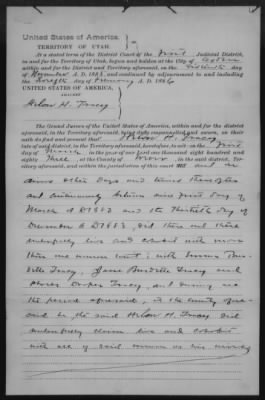 United States of America.
TERRITORY OF UTAH.
At a stated term of the District Court of the First Judicial District,
in and for the Territory of Utah, begun and holden at the City of Ogden
within and for the District and Territory aforesaid, on the day
of November A. D. 1885, and continued by adjournment to and including
the day of A. D. 1886
UNITED STATES OF AMERICA,
AGAINST
H. Tracy
The Grand Jurors of the United States of America, within and for the district
aforesaid, in the Territory aforesaid, being duly empanelled and sworn, on their
oaths do find and present that H. Tracy
late of said district, in the Territory aforesaid, heretofore, to wit: on the First
day of March, in the year of our Lord one thousand eight hundred and
eighty Three, at the County of Weber, in the said district, Ter-
ritory aforesaid, and within the jurisdiction of this court did and on
other days and times thereafter
and continuously between said first day of
March A D 1883 and the Thirtieth day of
December A D 1883, did then and there
unlawfully live and cohabit with more
than one woman to wit: with Emma
Tracy, Burdette Tracy and
Tracy, and during all
the period aforesaid, in the county afore-
said he the said H. Tracy did
unlawfully claim live and cohabit
with all of said women as his wives